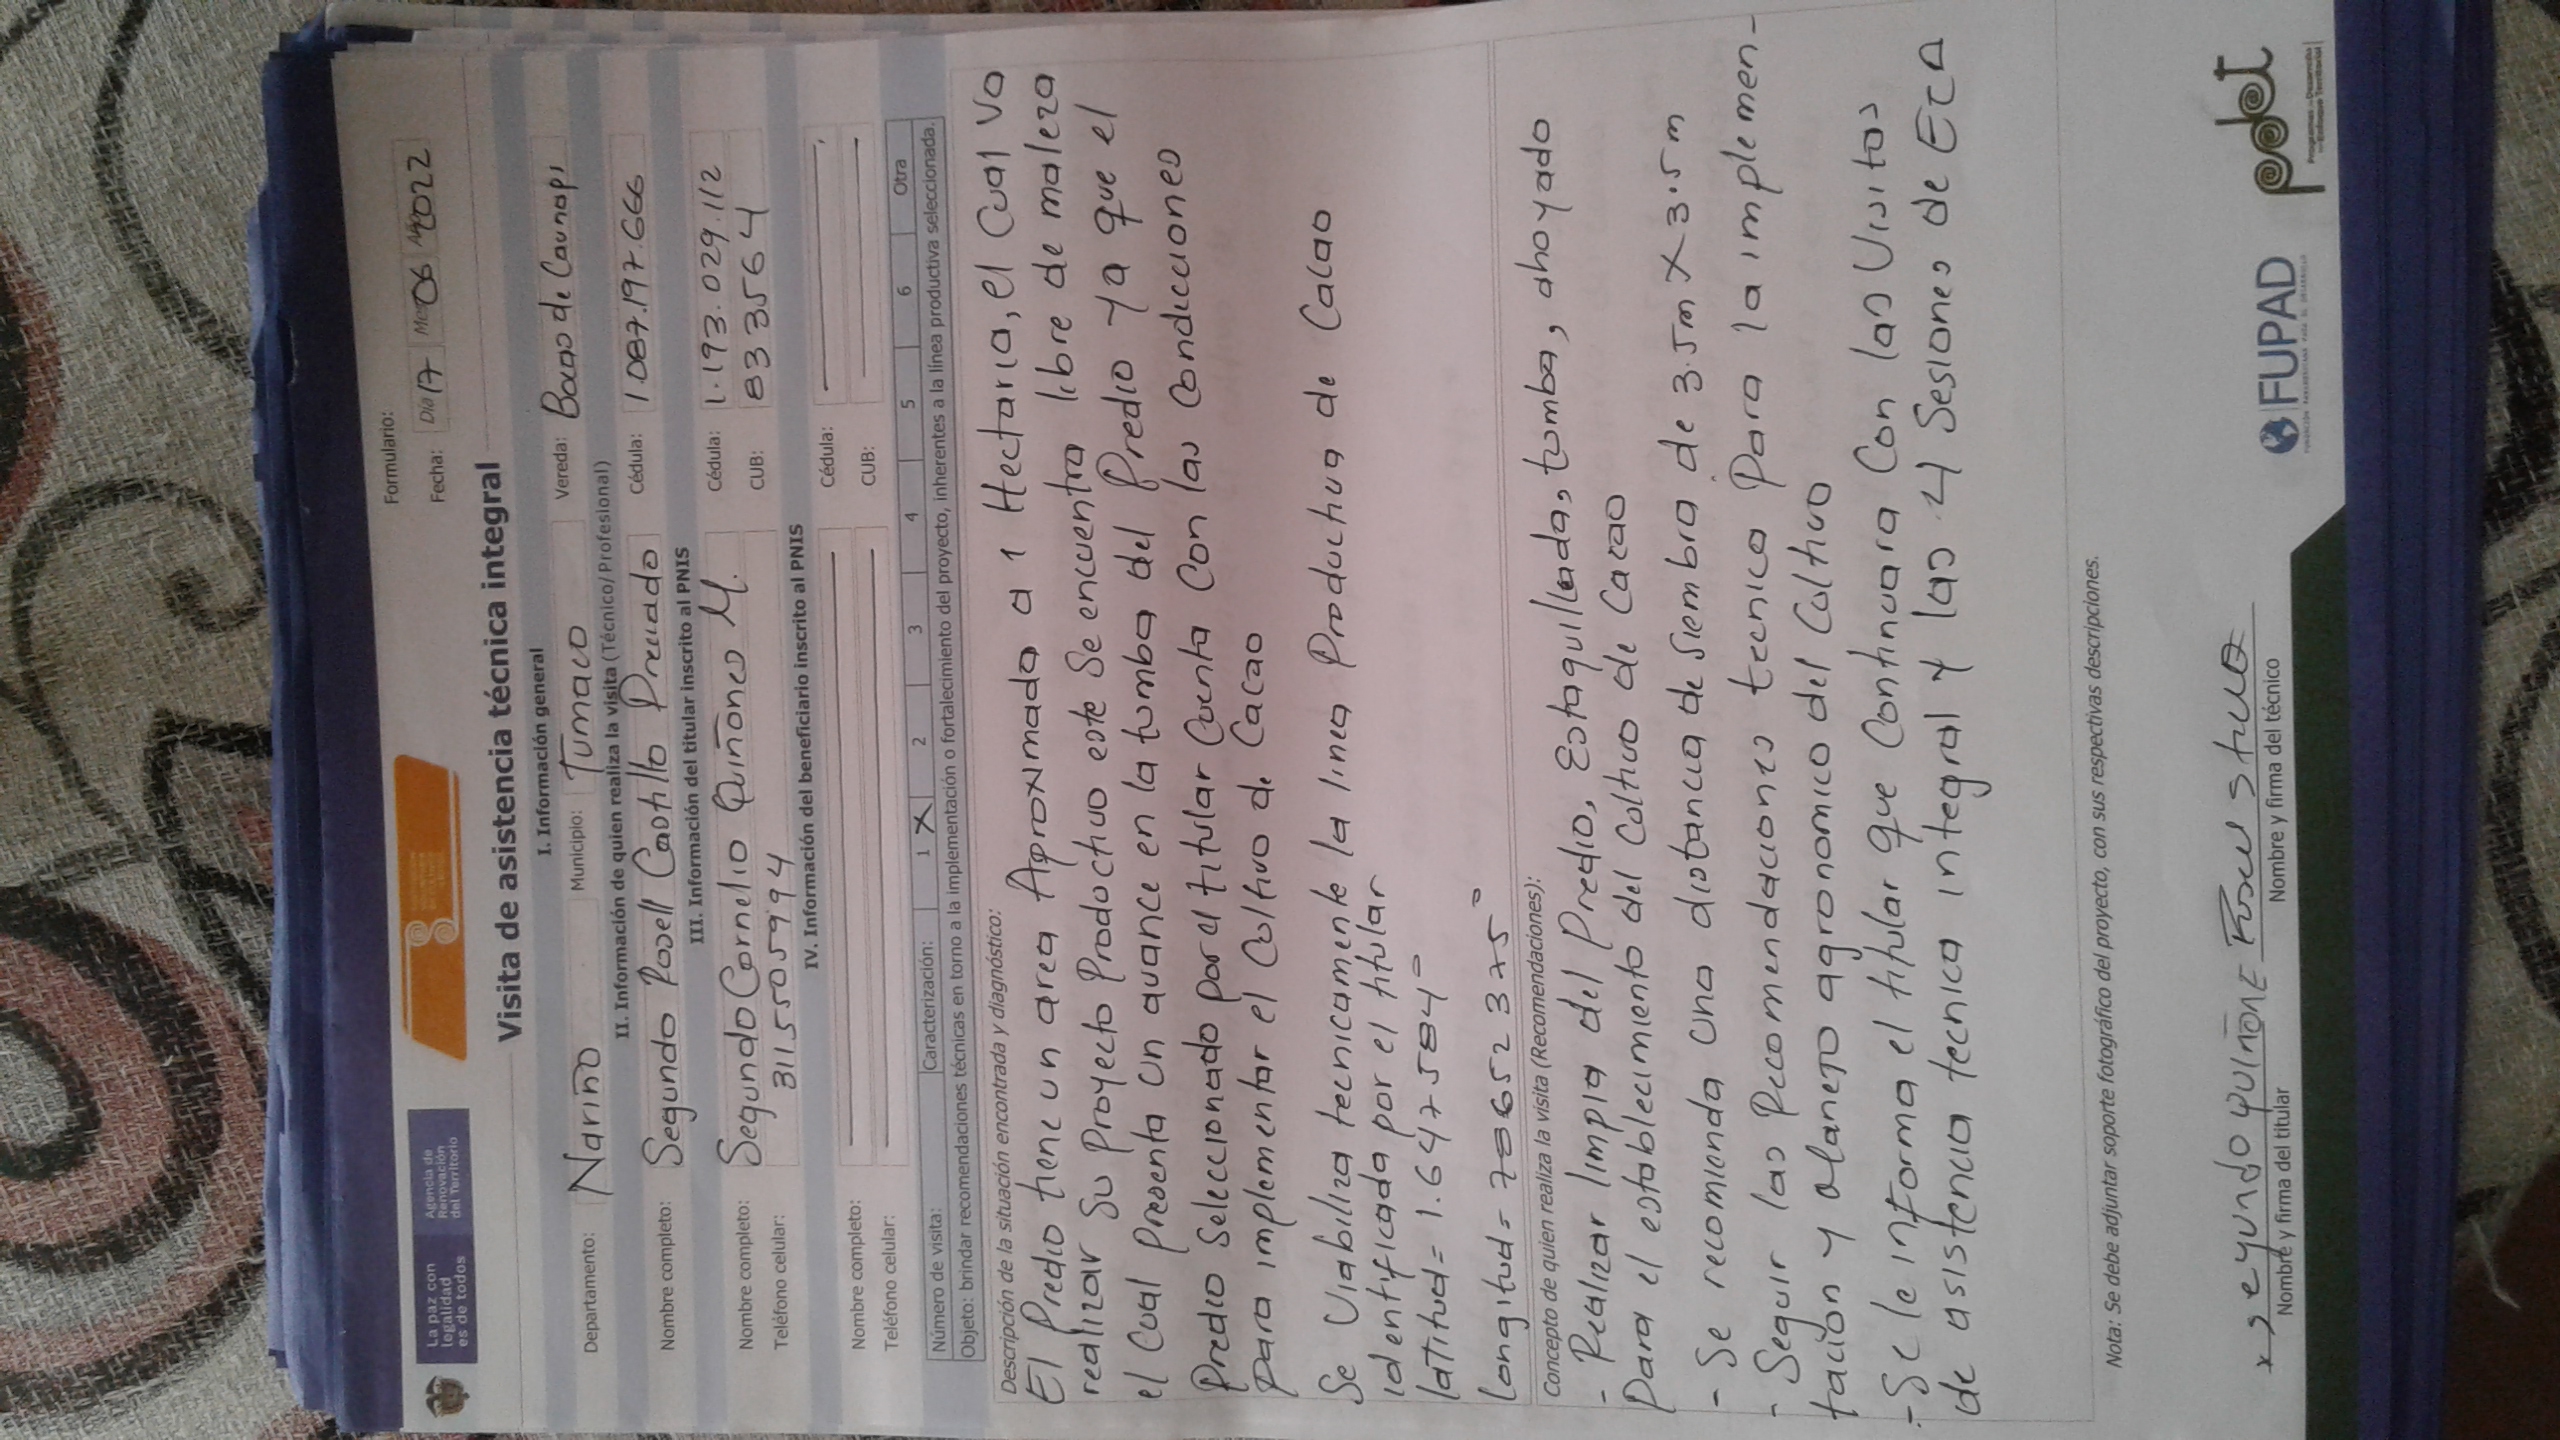 La paz con
legalidad
es de todos
Agencia de
Renovación
del Territorio
Formulario:
Fecha: Día 17 Mes 06 2022
Visita de asistencia técnica integral
I. Información general
Departamento: Nariño Municipio: Tumaco Vereda: Bocas de Caunapi
II. Información de quien realiza la visita (Técnico/Profesional)
Nombre completo: Segundo Rosell Castillo Preciado Cédula: 1.087.197.666
III. Información del titular inscrito al PNIS
Nombre completo: Segundo Cornelio Quiñones M. Cédula: 1.193.029.112
Teléfono celular: 3115505994 CUB: 833564
IV. Información del beneficiario inscrito al PNIS
Nombre completo: Cédula:
Teléfono celular: CUB:
Número de visita: Caracterización: 1 X 2 3 4 5 6 Otra
Objeto: brindar recomendaciones técnicas en torno a la implementación o fortalecimiento del proyecto, inherentes a la línea productiva seleccionada.
Descripción de la situación encontrada y diagnóstico:
El Predio tiene un area Aproximada a 1 Hectaria, el Cual va
realizar Su Proyecto Productivo este Se encuentra libre de maleza
el Cual Presenta Un avance en la tumba del Predio ya que el
Predio Seleccionado por el titular Cuenta Con las Condiciones
Para implementar el Cultivo de Cacao
Se Viabiliza tecnicamente la linea Productiva de Cacao
identificada por el titular
latitud= 1.6475844°
longitud= 78.652375°
Concepto de quien realiza la visita (Recomendaciones):
- Realizar limpia del Predio, Estaquillada, tumba, ahoyado
Para el establecimiento del Cultivo de Cacao
- Se recomienda Una distancia de Siembra de 3.5m X 3.5m
- Seguir las Recomendaciones tecnica Para la implemen-
tación y Manejo agronomico del Cultivo
- Se le informa el titular que Continuara Con las Visitas
de asistencia tecnica integral y las 4 Sesiones de ECA
Nota: Se debe adjuntar soporte fotográfico del proyecto, con sus respectivas descripciones.
x segundo quiñone
Nombre y firma del titular
Nombre y firma del técnico
FUPAD
pdet
Programas de Desarrollo
con Enfoque Territorial